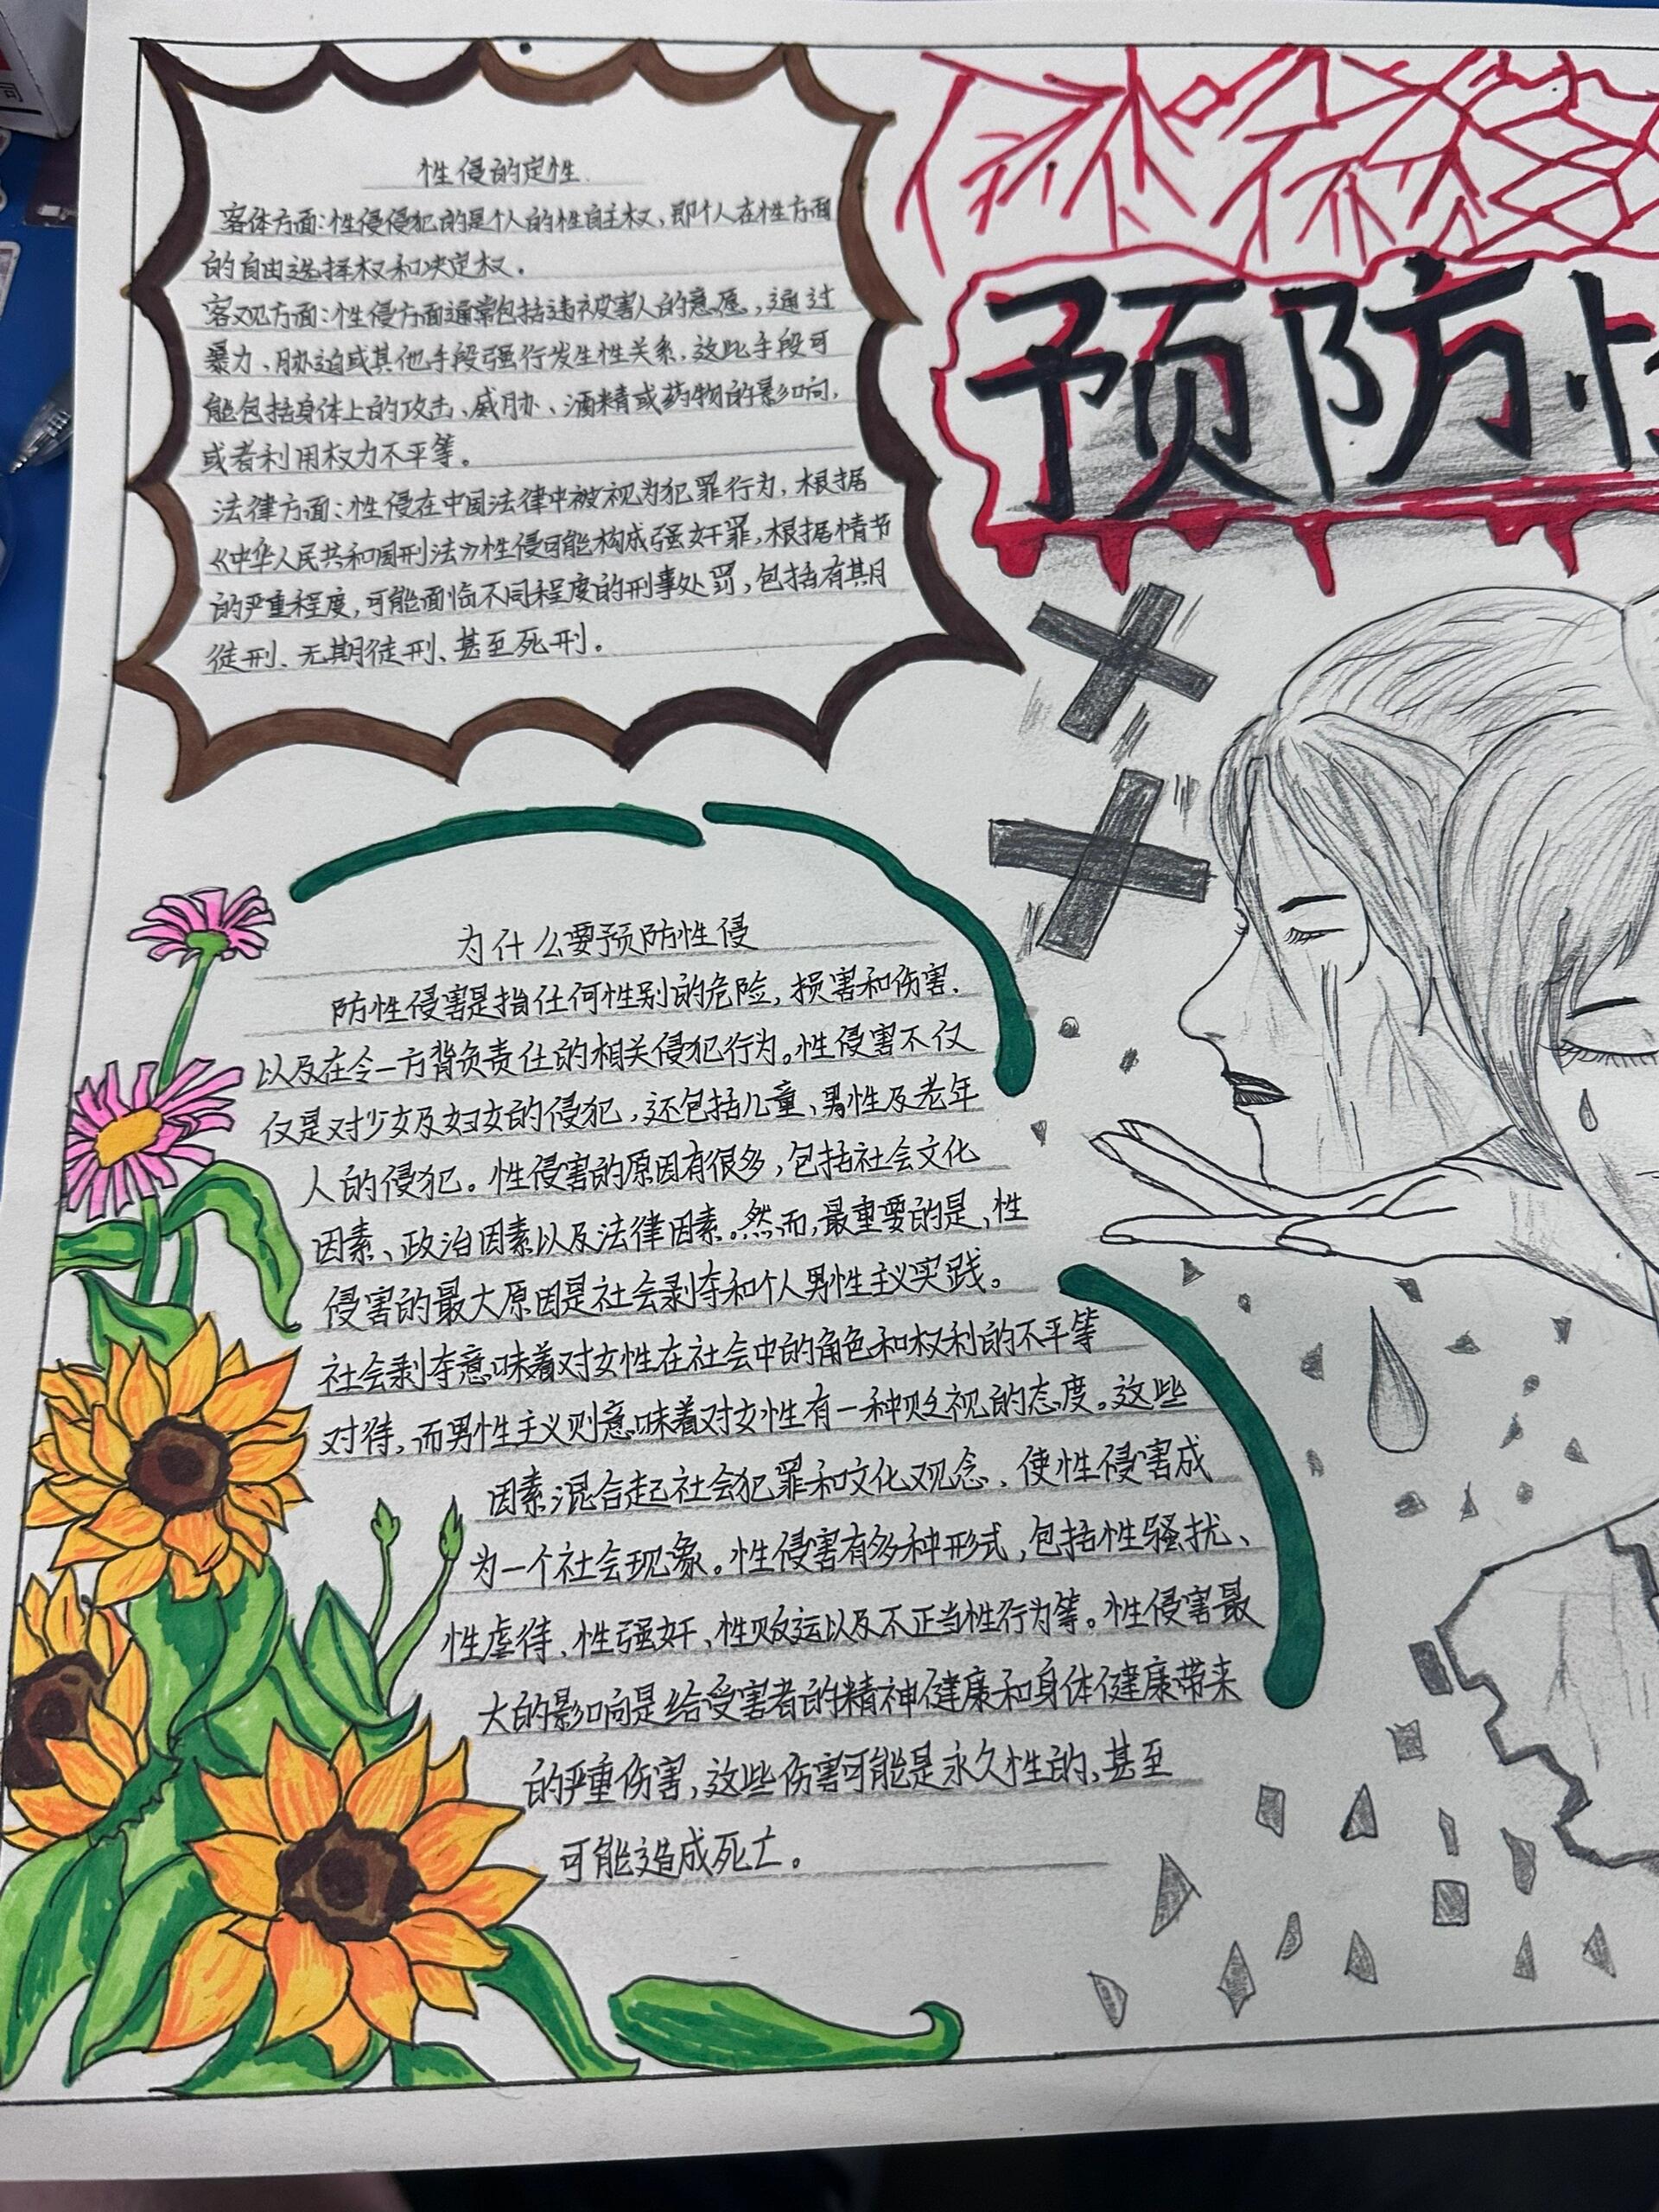 性侵的定性
客体方面:性侵侵犯的是个人的性自主权,即个人在性方面
的自由选择权和决定权.
客观方面:性侵方面通常包括违被害人的意愿,通过
暴力、胁迫或其他手段强行发生性关系.这些手段可
能包括身体上的攻击、威胁、酒精或药物的影响,
或者利用权力不平等。
法律方面:性侵在中国法律中被视为犯罪行为,根据
《中华人民共和国刑法》性侵可能构成强奸罪,根据情节
的严重程度,可能面临不同程度的刑事处罚,包括有其月
徒刑、无期徒刑、甚至死刑。
预防
为什么要预防性侵
防性侵害是指任何性别的危险,损害和伤害.
以及在令一方背负责任的相关侵犯行为。性侵害不仅
仅是对少女及妇女的侵犯,还包括儿童、男性及老年
人的侵犯。性侵害的原因有很多,包括社会文化
因素、政治因素以及法律因素.然而,最重要的是,性
侵害的最大原因是社会剥夺和个人男性主义实践。
社会剥夺意味着对女性在社会中的角色和权利的不平等
对待,而男性主义则意味着对女性有一种贬视的态度。这些
因素混合起社会犯罪和文化观念、使性侵害成
为一个社会现象。性侵害有多种形式,包括性骚扰、
性虐待、性强奸、性贩运以及不正当性行为等。性侵害最
大的影响是给受害者的精神健康和身体健康带来
的严重伤害,这些伤害可能是永久性的,甚至
可能造成死亡。